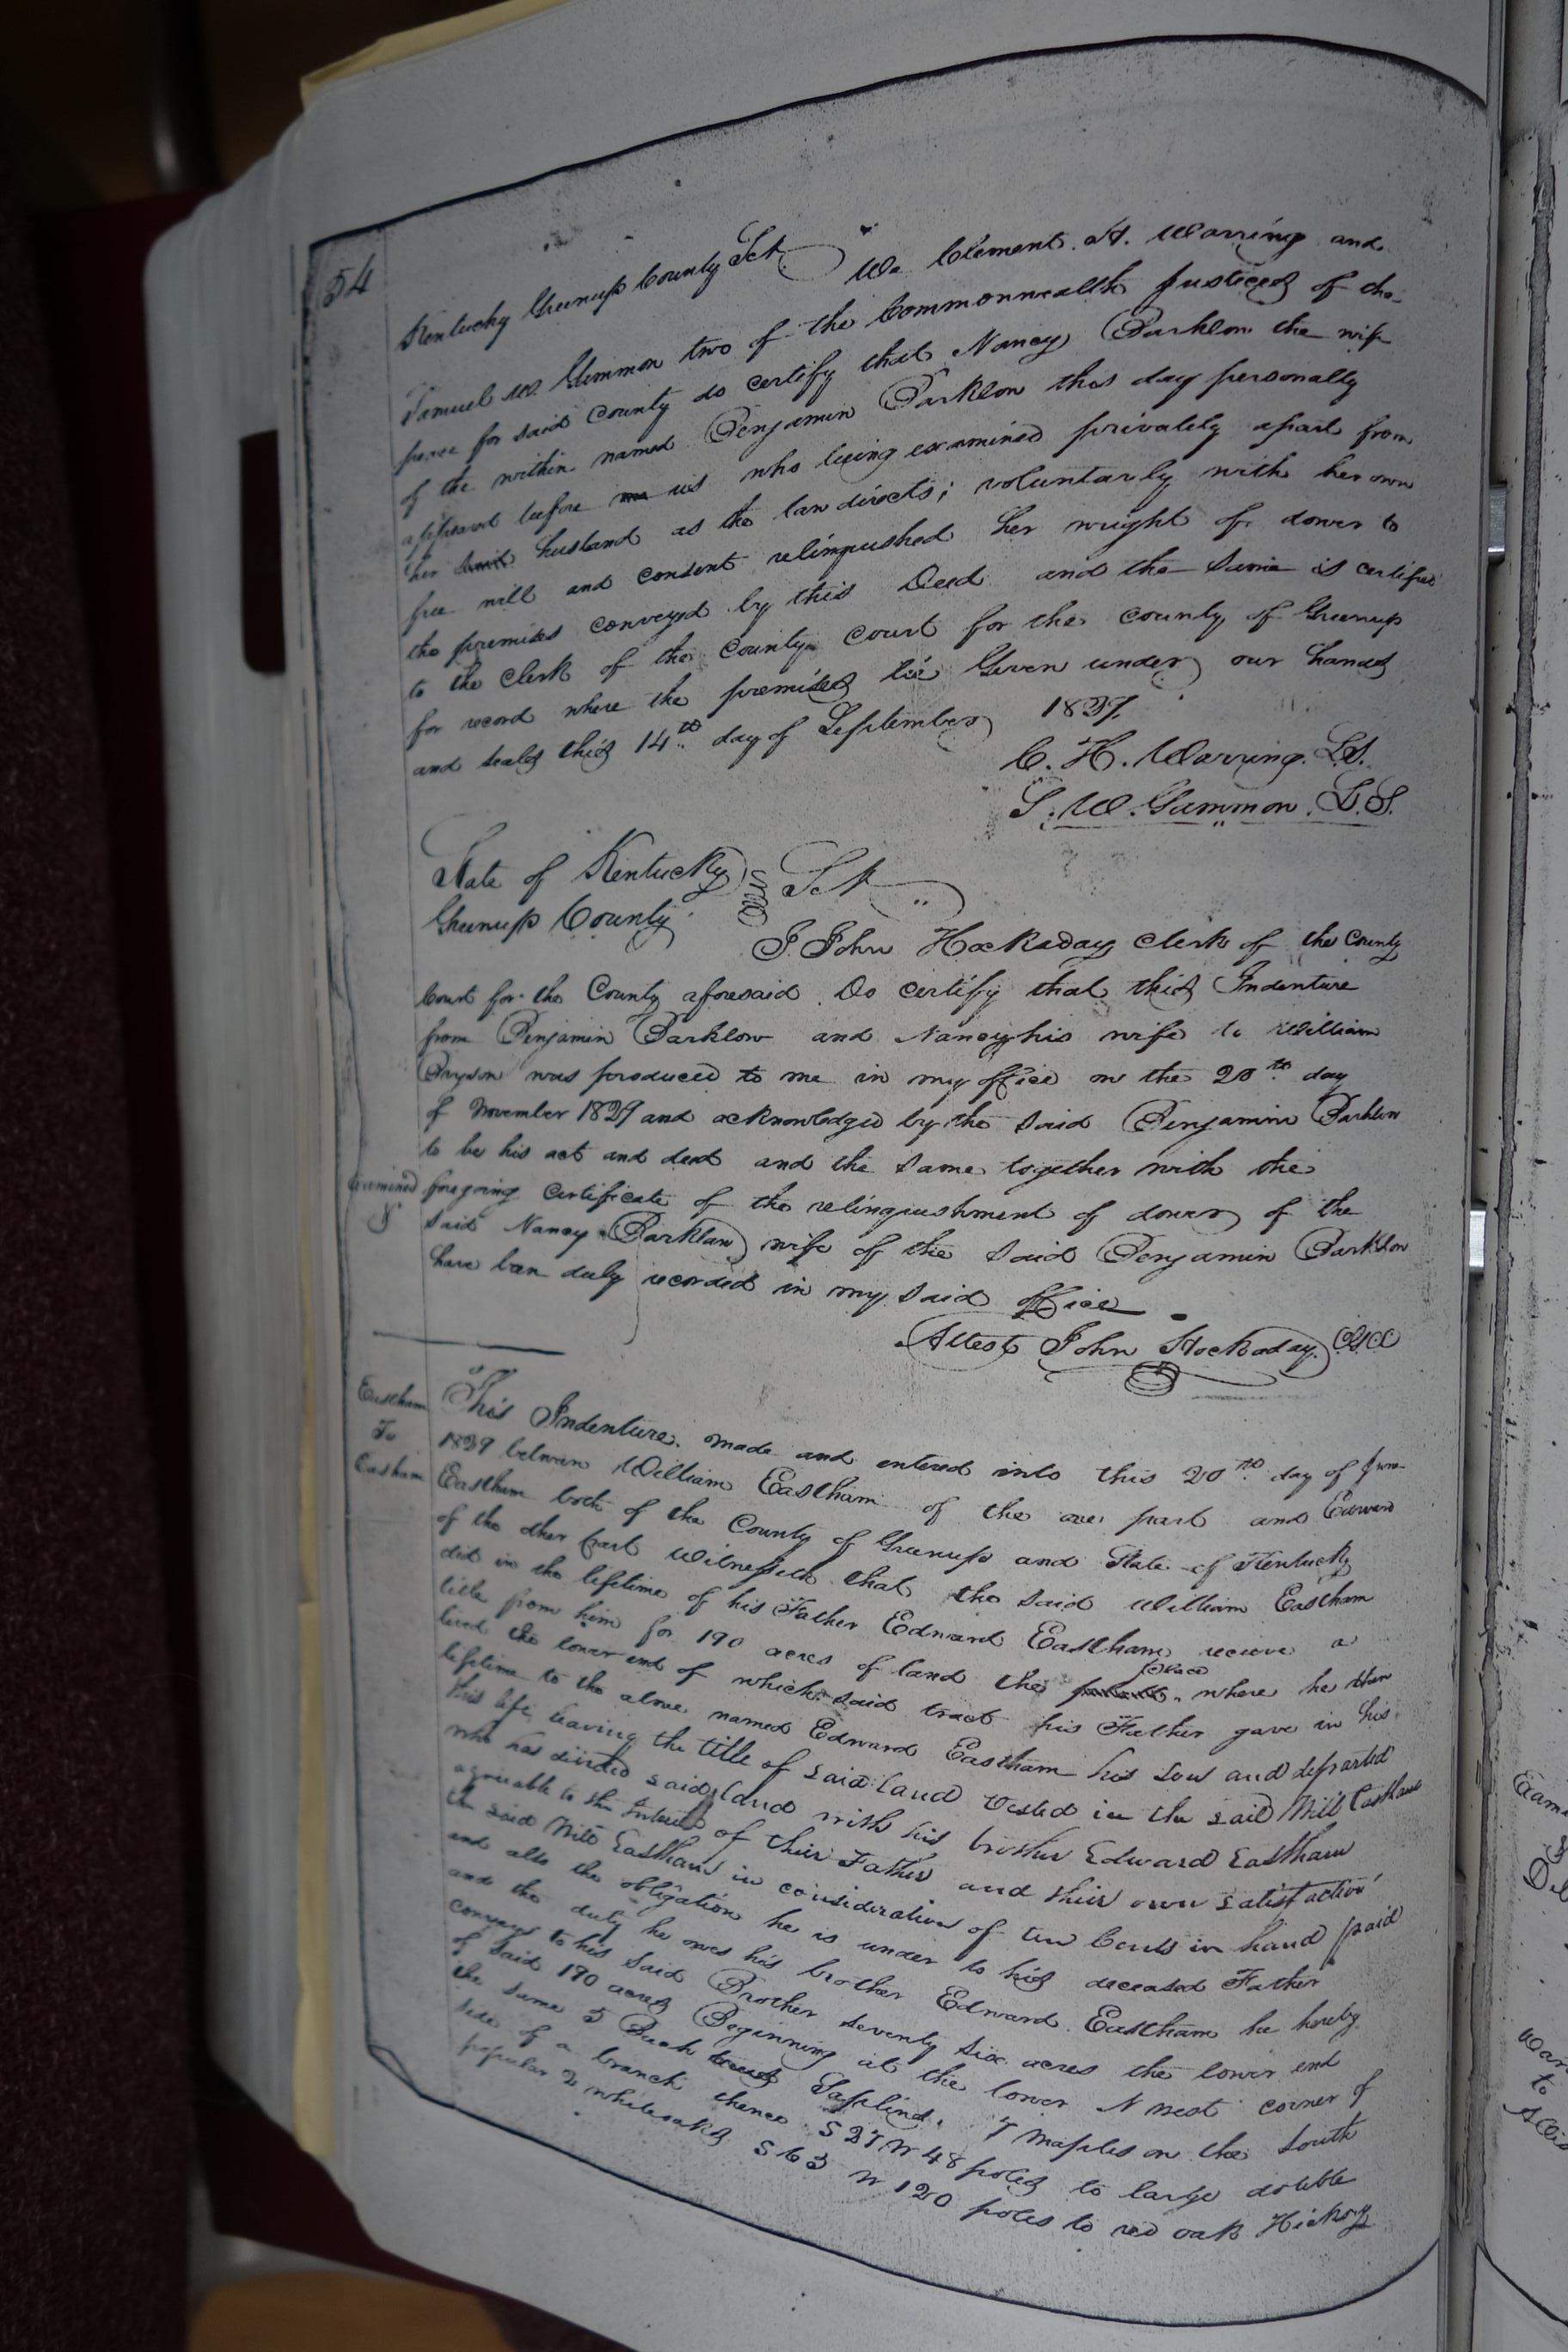 54
Kentucky Greenup County Sct. We Clement. H. Warring and
Samuel W. Gammon two of the Commonwealth Justices of the
peace for said County do certify that Nancy Barklow the wife
of the within named Benjamin Barklow this day personally
appeared before me us who being examined privately apart from
her said husband as the law directs; voluntarly with her own
free will and consent relinquished her wright of dower to
the premises conveyed by this Deed and the same is certified
to the clerk of the county court for the county of Greenup
for record where the premises lie Given under our hands
and seals this 14th day of September 1829.
C. H. Warring. L.S.
S. W. Gammon. L.S.
State of Kentucky Sct
Greenup County
I John Hockaday clerk of the County
Court for the County aforesaid. Do certify that this Indenture
from Benjamin Barklow and Nancy his wife to William
Bryson was produced to me in my office on the 20th day
of November 1829 and acknowledged by the said Benjamin Barklow
to be his act and deed and the same together with the
Examined foregoing certificate of the relinquishment of dower of the
said Nancy Barklow wife of the said Benjamin Barklow
have been duly recorded in my said office
Attest John Hockaday. CGCC
Eastham
To
Eastham
This Indenture. made and entered into this 20th day of June
1829 between William Eastham of the one part and Edward
Eastham both of the County of Greenup and State of Kentucky
of the other part Witnesseth that the said William Eastham
did in the lifetime of his Father Edward Eastham receive a
title from him for 190 acres of land the place where he then
lived the lower end of which said tract his Father gave in his
lifetime to the above named Edward Eastham his son and departed
this life leaving the title of said land vested in the said Will Eastham
who has divided said land with his brother Edward Eastham
agreeable to the interest of their Father and their own satisfaction
the said Will Eastham in consideration of ten Cents in hand paid
and also the obligation he is under to his deceased Father
and the duty he owes his brother Edward Eastham he hereby
conveys to his said Brother seventy six acres the lower end
of said 190 acres Beginning at the lower N west corner of
the same 3 Beech trees Sapling. 7 maples on the South
side of a branch thence S 27 W 48 poles to large double
popular 2 whiteoaks S 63 W 120 poles to red oak Hickory